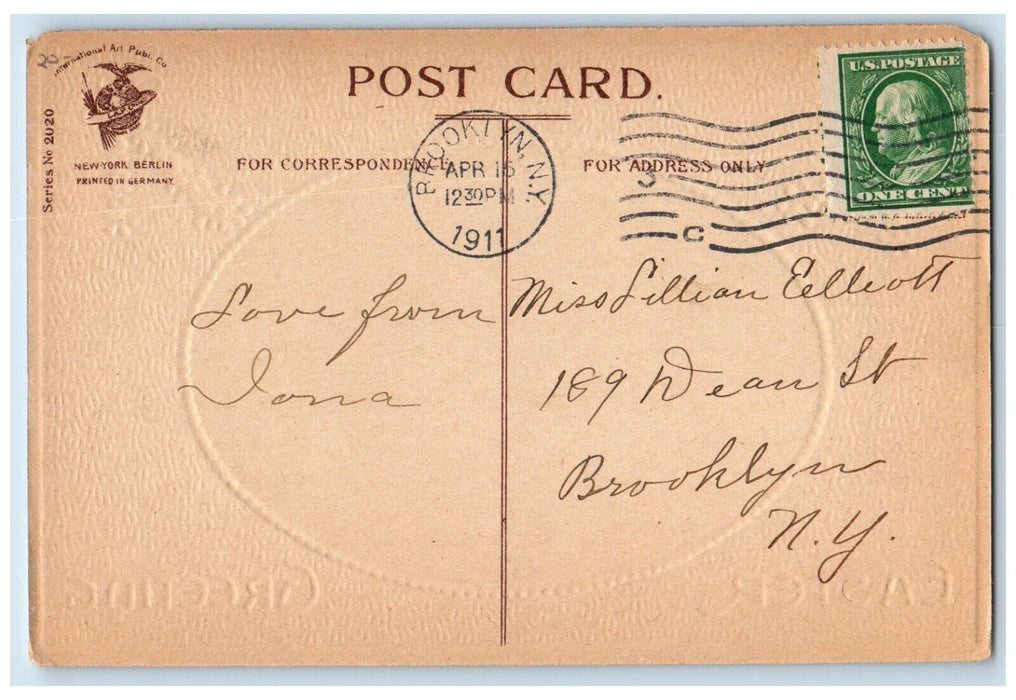 20
International Art Publ. Co
POST CARD.
Series No 2020
NEW-YORK BERLIN
PRINTED IN GERMANY.
FOR CORRESPONDENCE
FOR ADDRESS ONLY
BROOKLYN, N.Y.
APR 15
12 30 PM
1911
3
C
U.S. POSTAGE
ONE CENT
Love from
Iona
Miss Lillian Ellicott
189 Dean St
Brooklyn
N.Y.
GREETING
EASTER